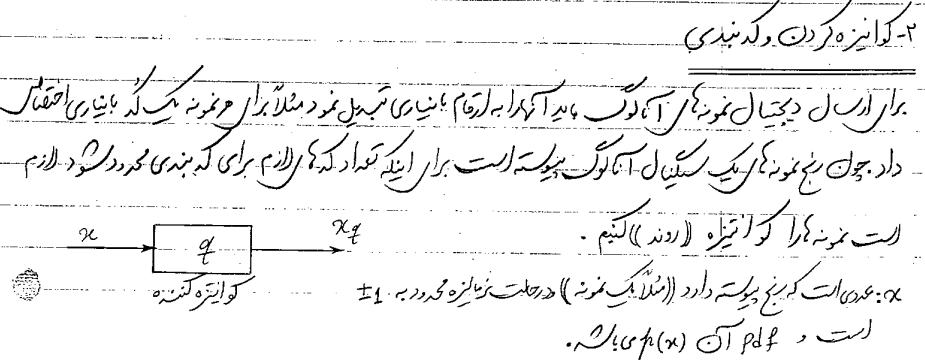 ۲- کوانیزه کردن و کد بندی
برای ارسال دیجیتال نمونه های آنالوگ باید آنها را به ارقام باینری تبدیل نمود مثلاً برای هر نمونه یک کُد باینری اختصاص
داد. چون رنج نمونه های یک سیگنال آنالوگ پیوسته است برای اینکه تعداد کدهای لازم برای کد بندی محدود شود لازم
است نمونه ها را کوانتیزه ((روند)) کنیم .
x q xq
کوانتیزه کننده
x: عددی است که رنج پیوسته دارد ((مثلاً یک نمونه)) در حالت نرمالیزه محدود به ±1
است و pdf آن p(x) می باشد.